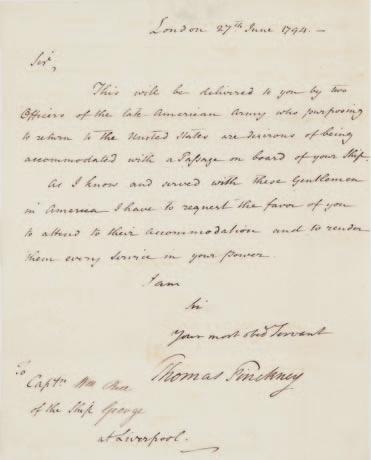 London 27th June 1794. —
Sir,
This will be delivered to you by two
Officers of the late American Army who purposing
to return to the United States are desirous of being
accommodated with a Passage on board of your Ship.
As I know and served with these Gentlemen
in America I have to request the favor of you
to attend to their accommodation and to render
them every Service in your Power.
I am
Sir
Your most obed Servant
Thomas Pinckney
To
Captn Wm
of the Ship George
at Liverpool.